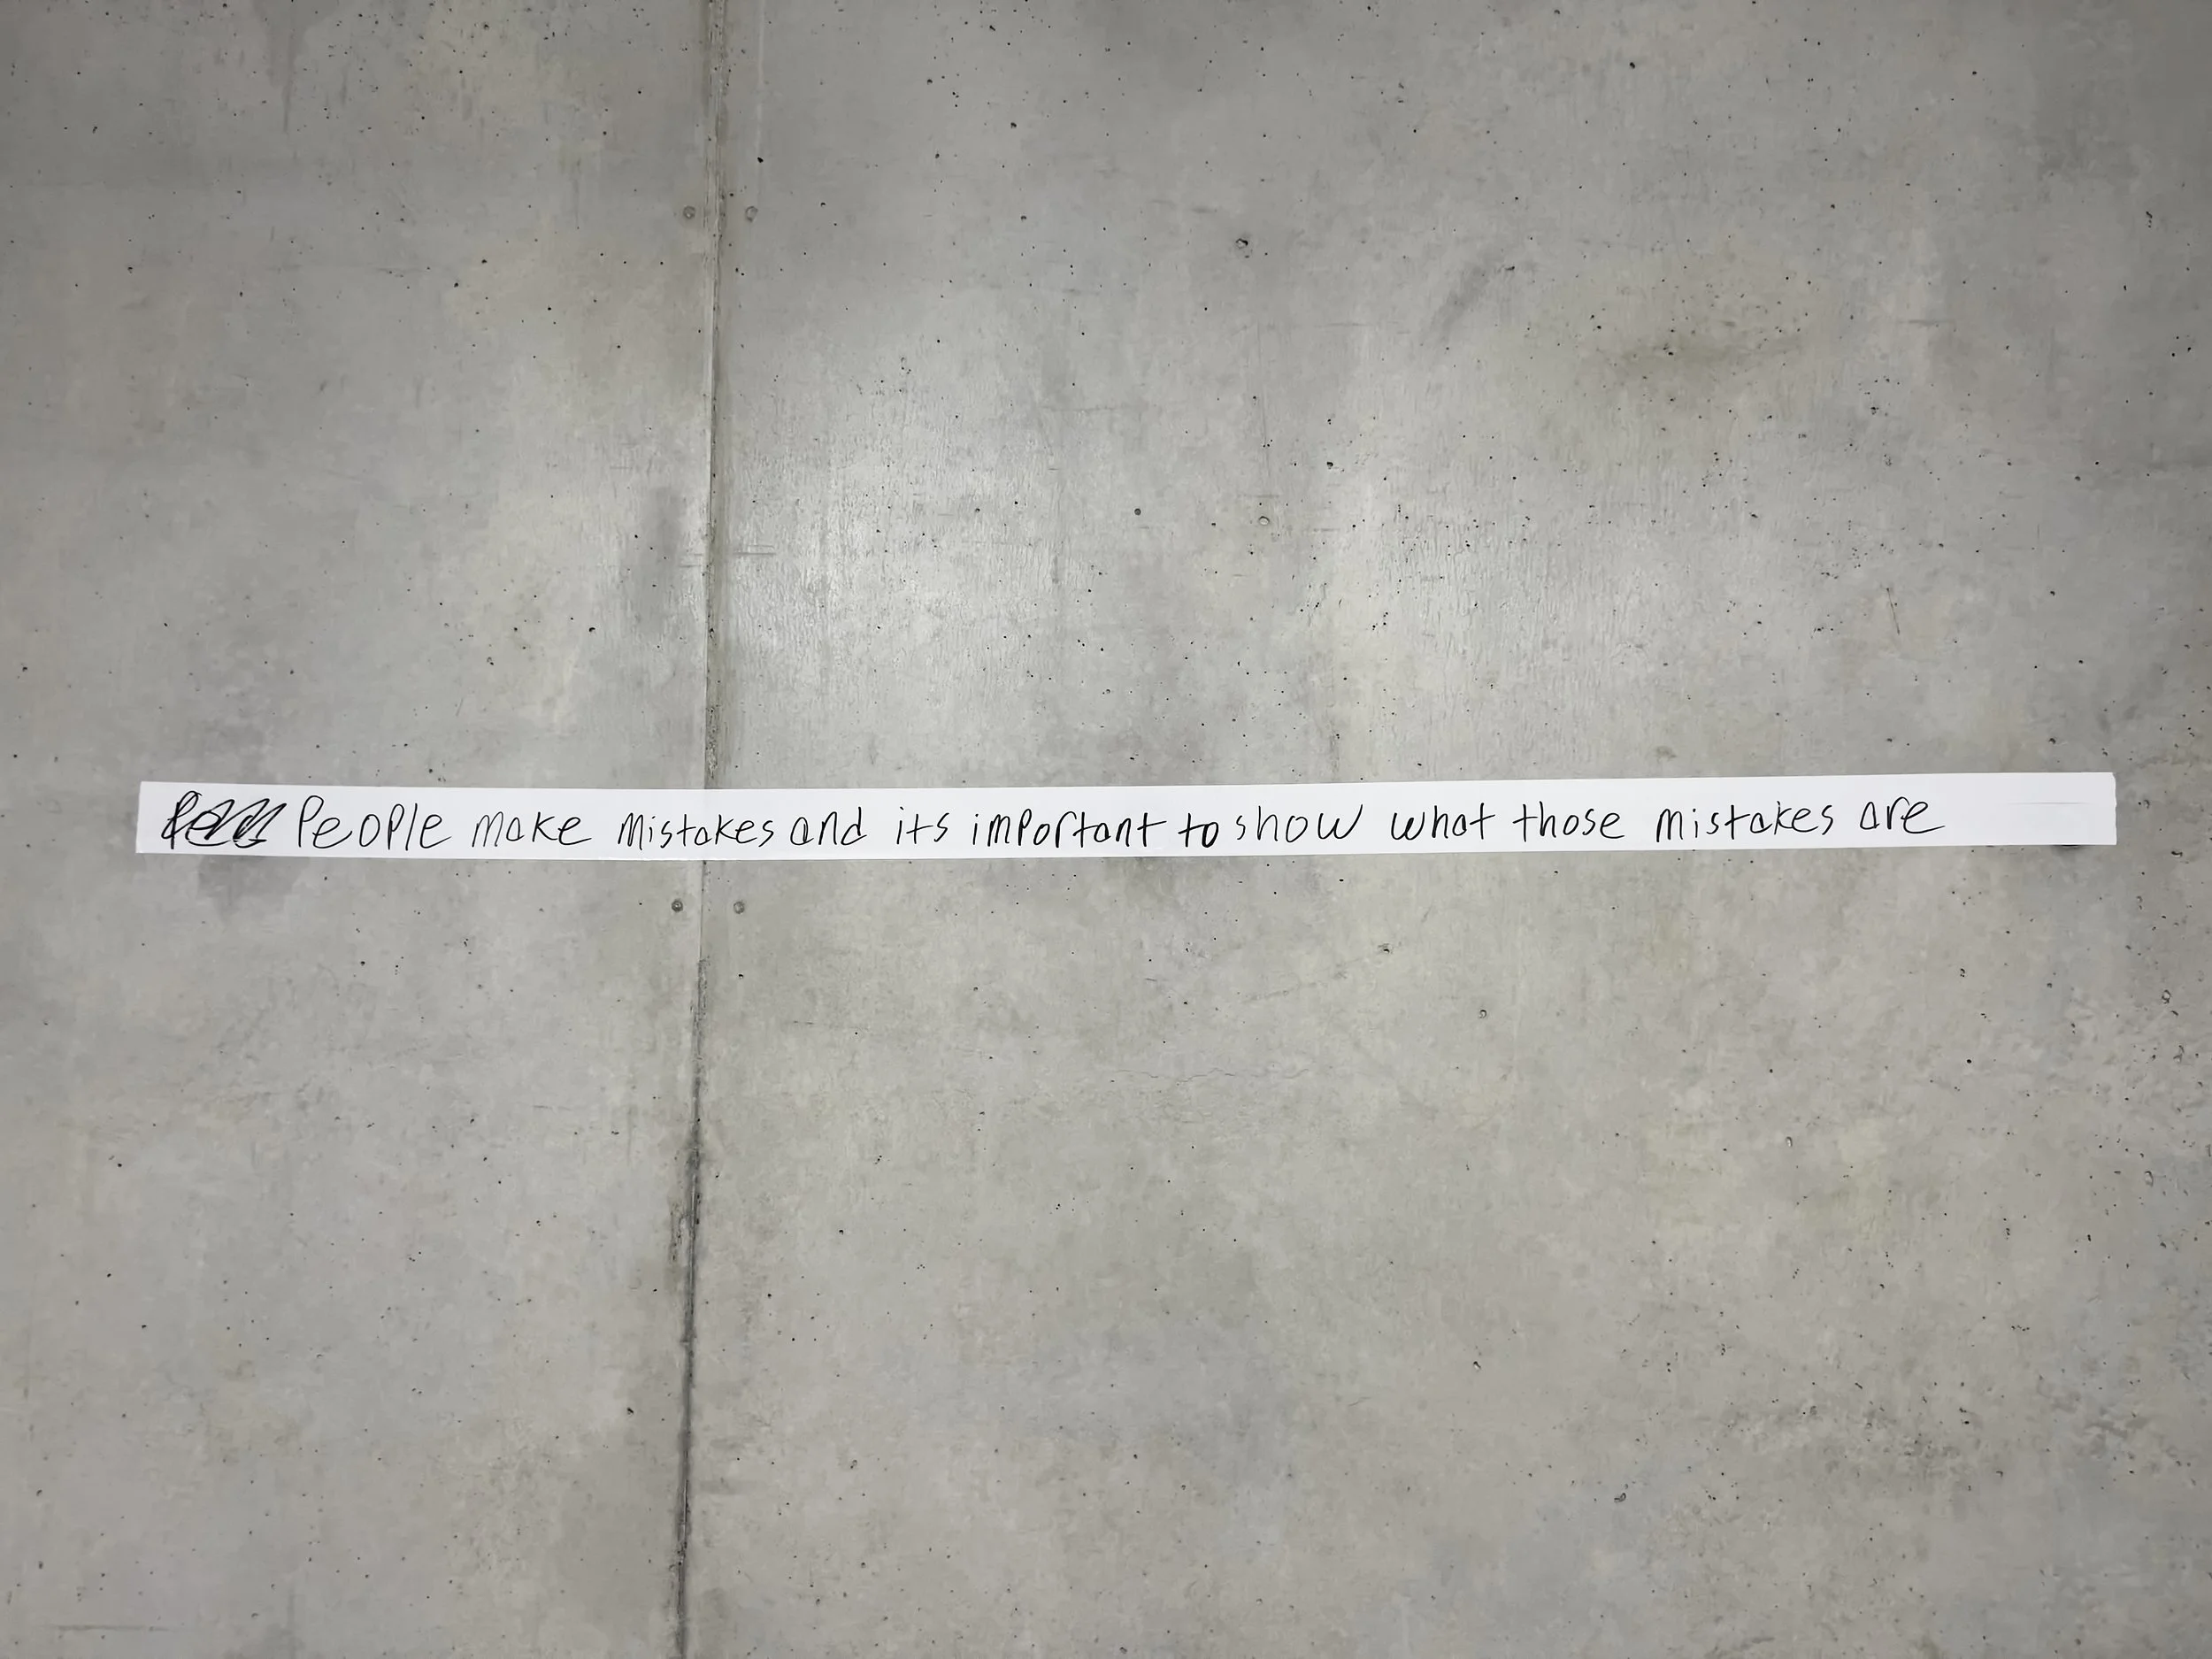 People make mistakes and its important to show what those mistakes are